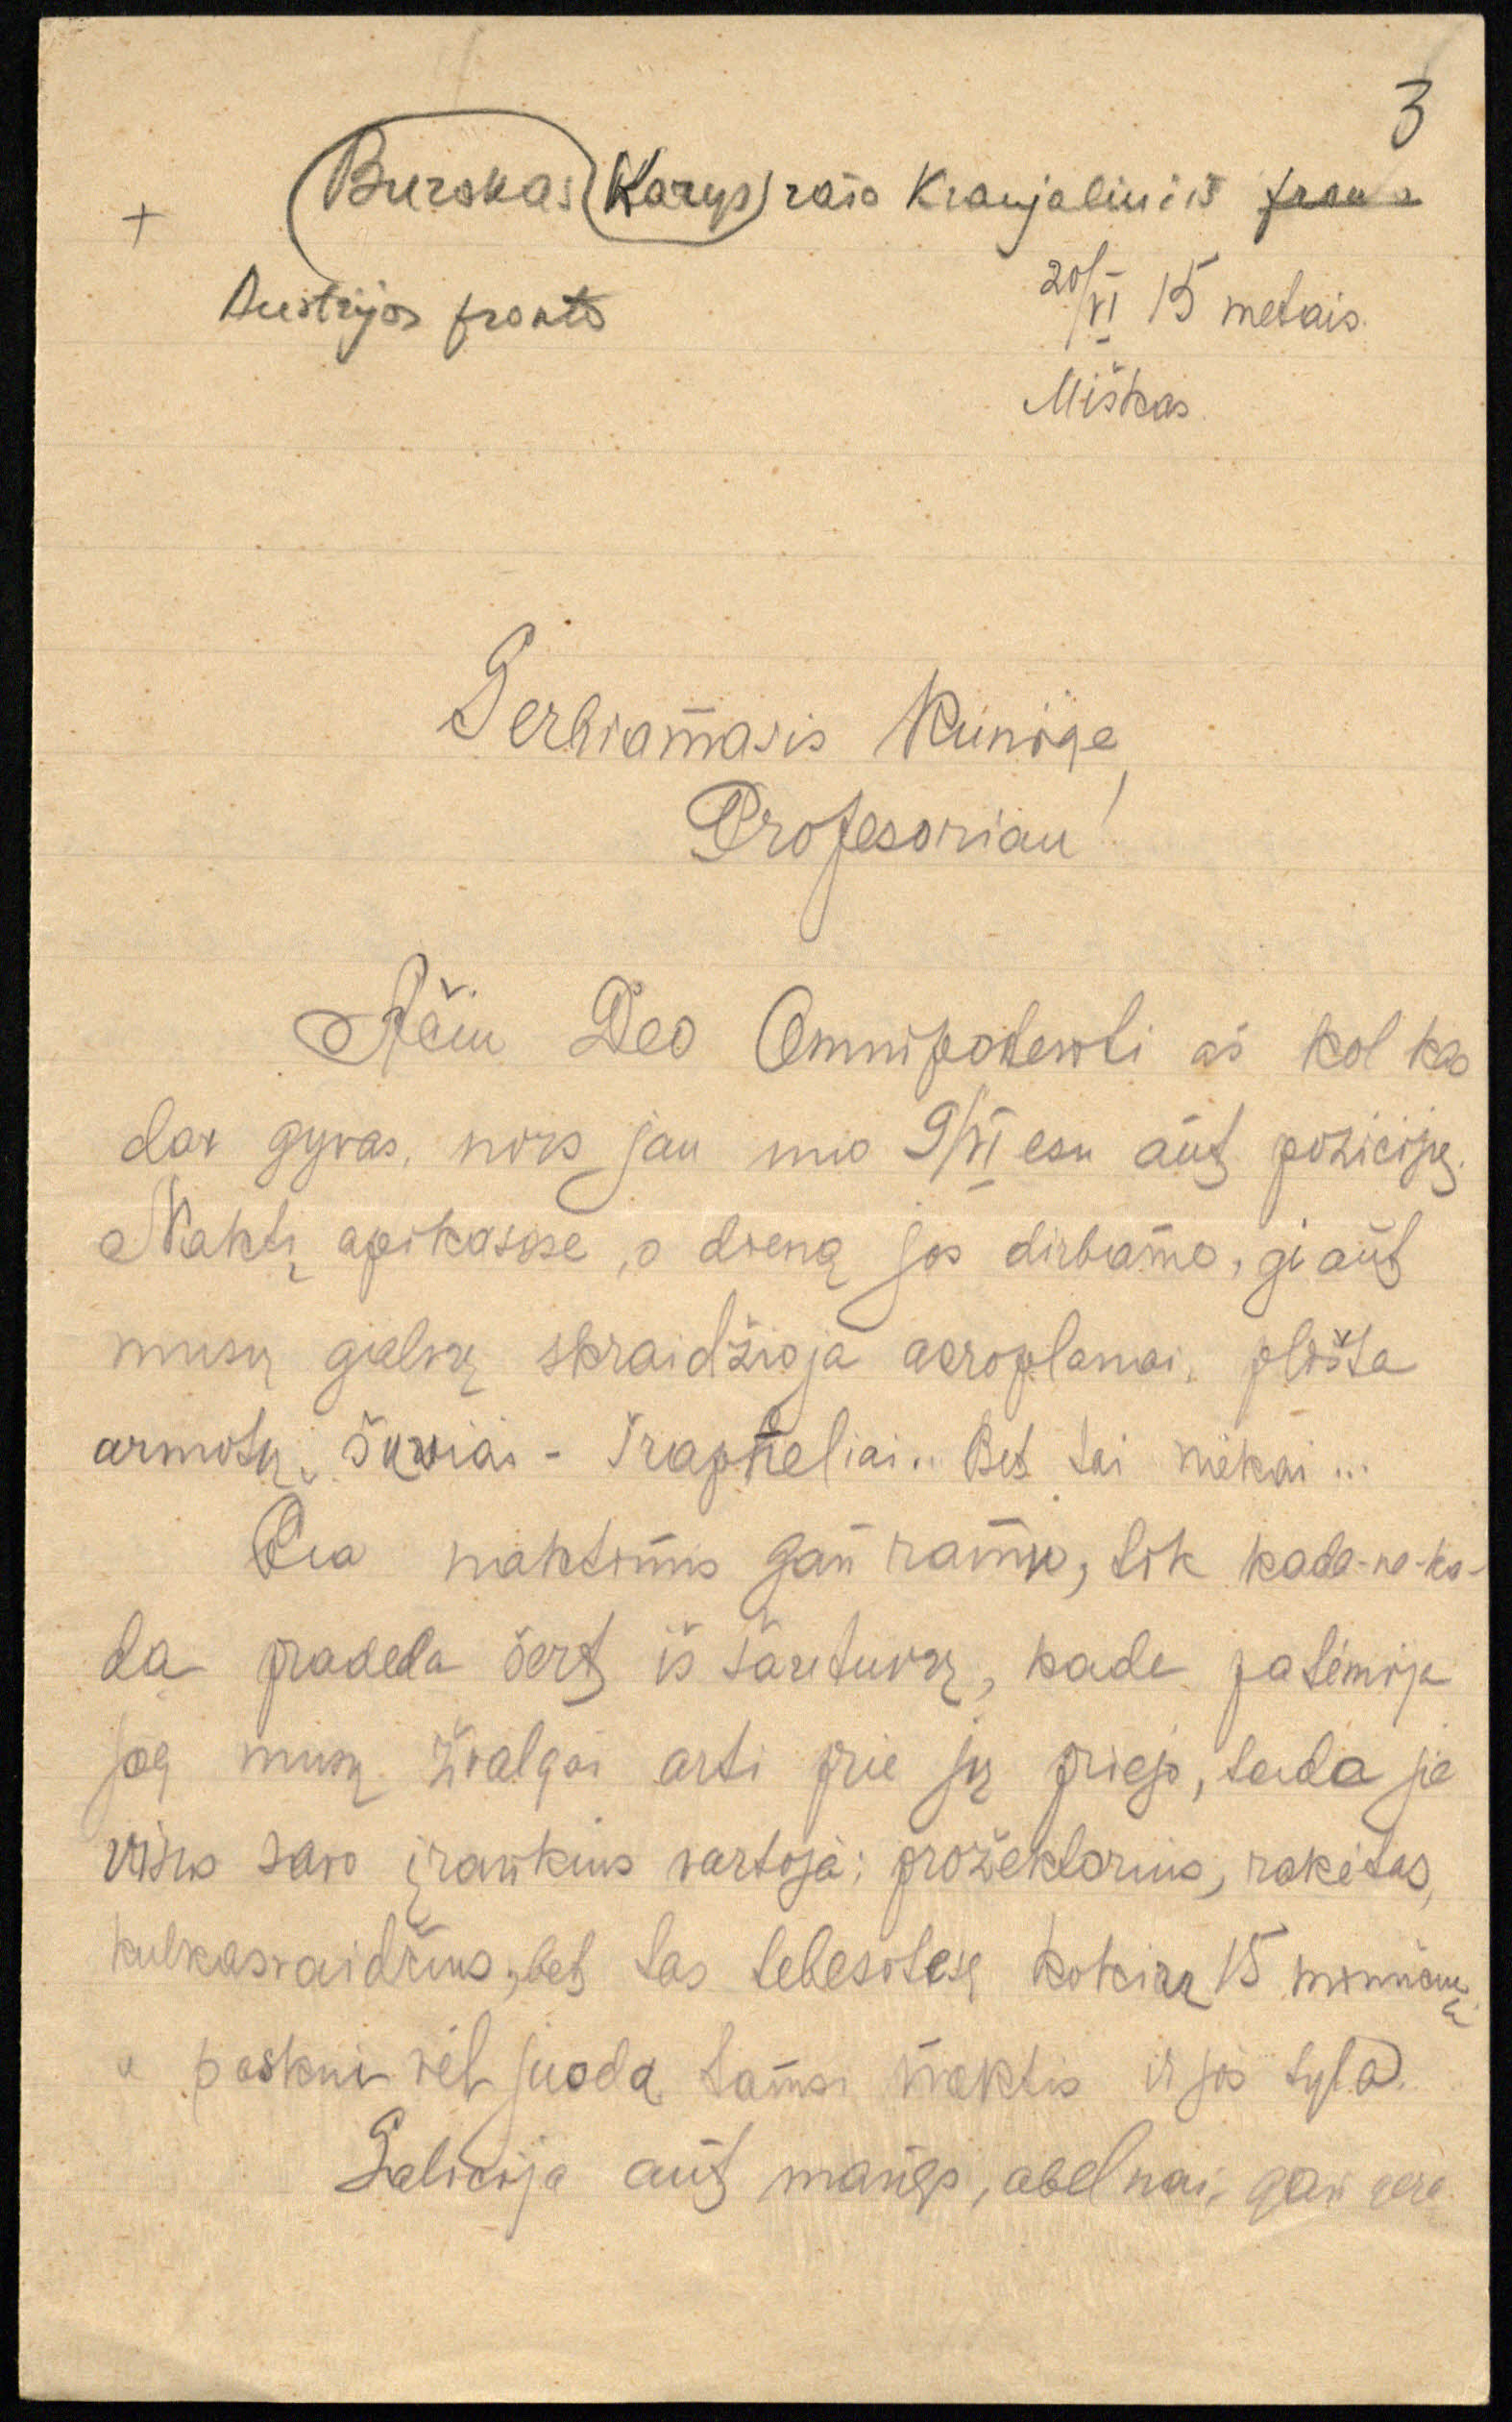 3
+ Burskas (Karys) rašo Kraujaliui iš fron
Austrijos fronto
20/VI 15 metais.
Miškas.
Gerbiamasis Kunige
Profesoriau!
Ačiu Deo Omnipotenti aš kol kas
dar gyvas, nors jau nuo 9/VI esu añt pozicijų.
Naktį apkasose, o dieną jos dirbamo, gi añt
musų galvų skraidžioja aeroplanai, plišta
armotų šuviai - šrapneliai.. Bet tai niekai...
Čia naktimis gañ ramu, tik kada-ne-ka-
da pradeda šert iš šautuvų, kada patėmija
jog musų žvalgai arti prie jų priejo, tada jie
visus savo įrankius vartoja: prožektorius, rakėtas,
kulkasvaidžius, bet tas tebesitesę kokiu 15 minučių
o paskui vėl juoda tamsi naktis ir jos tyla.
Galicija añt manęs, abelnai, gañ gerą